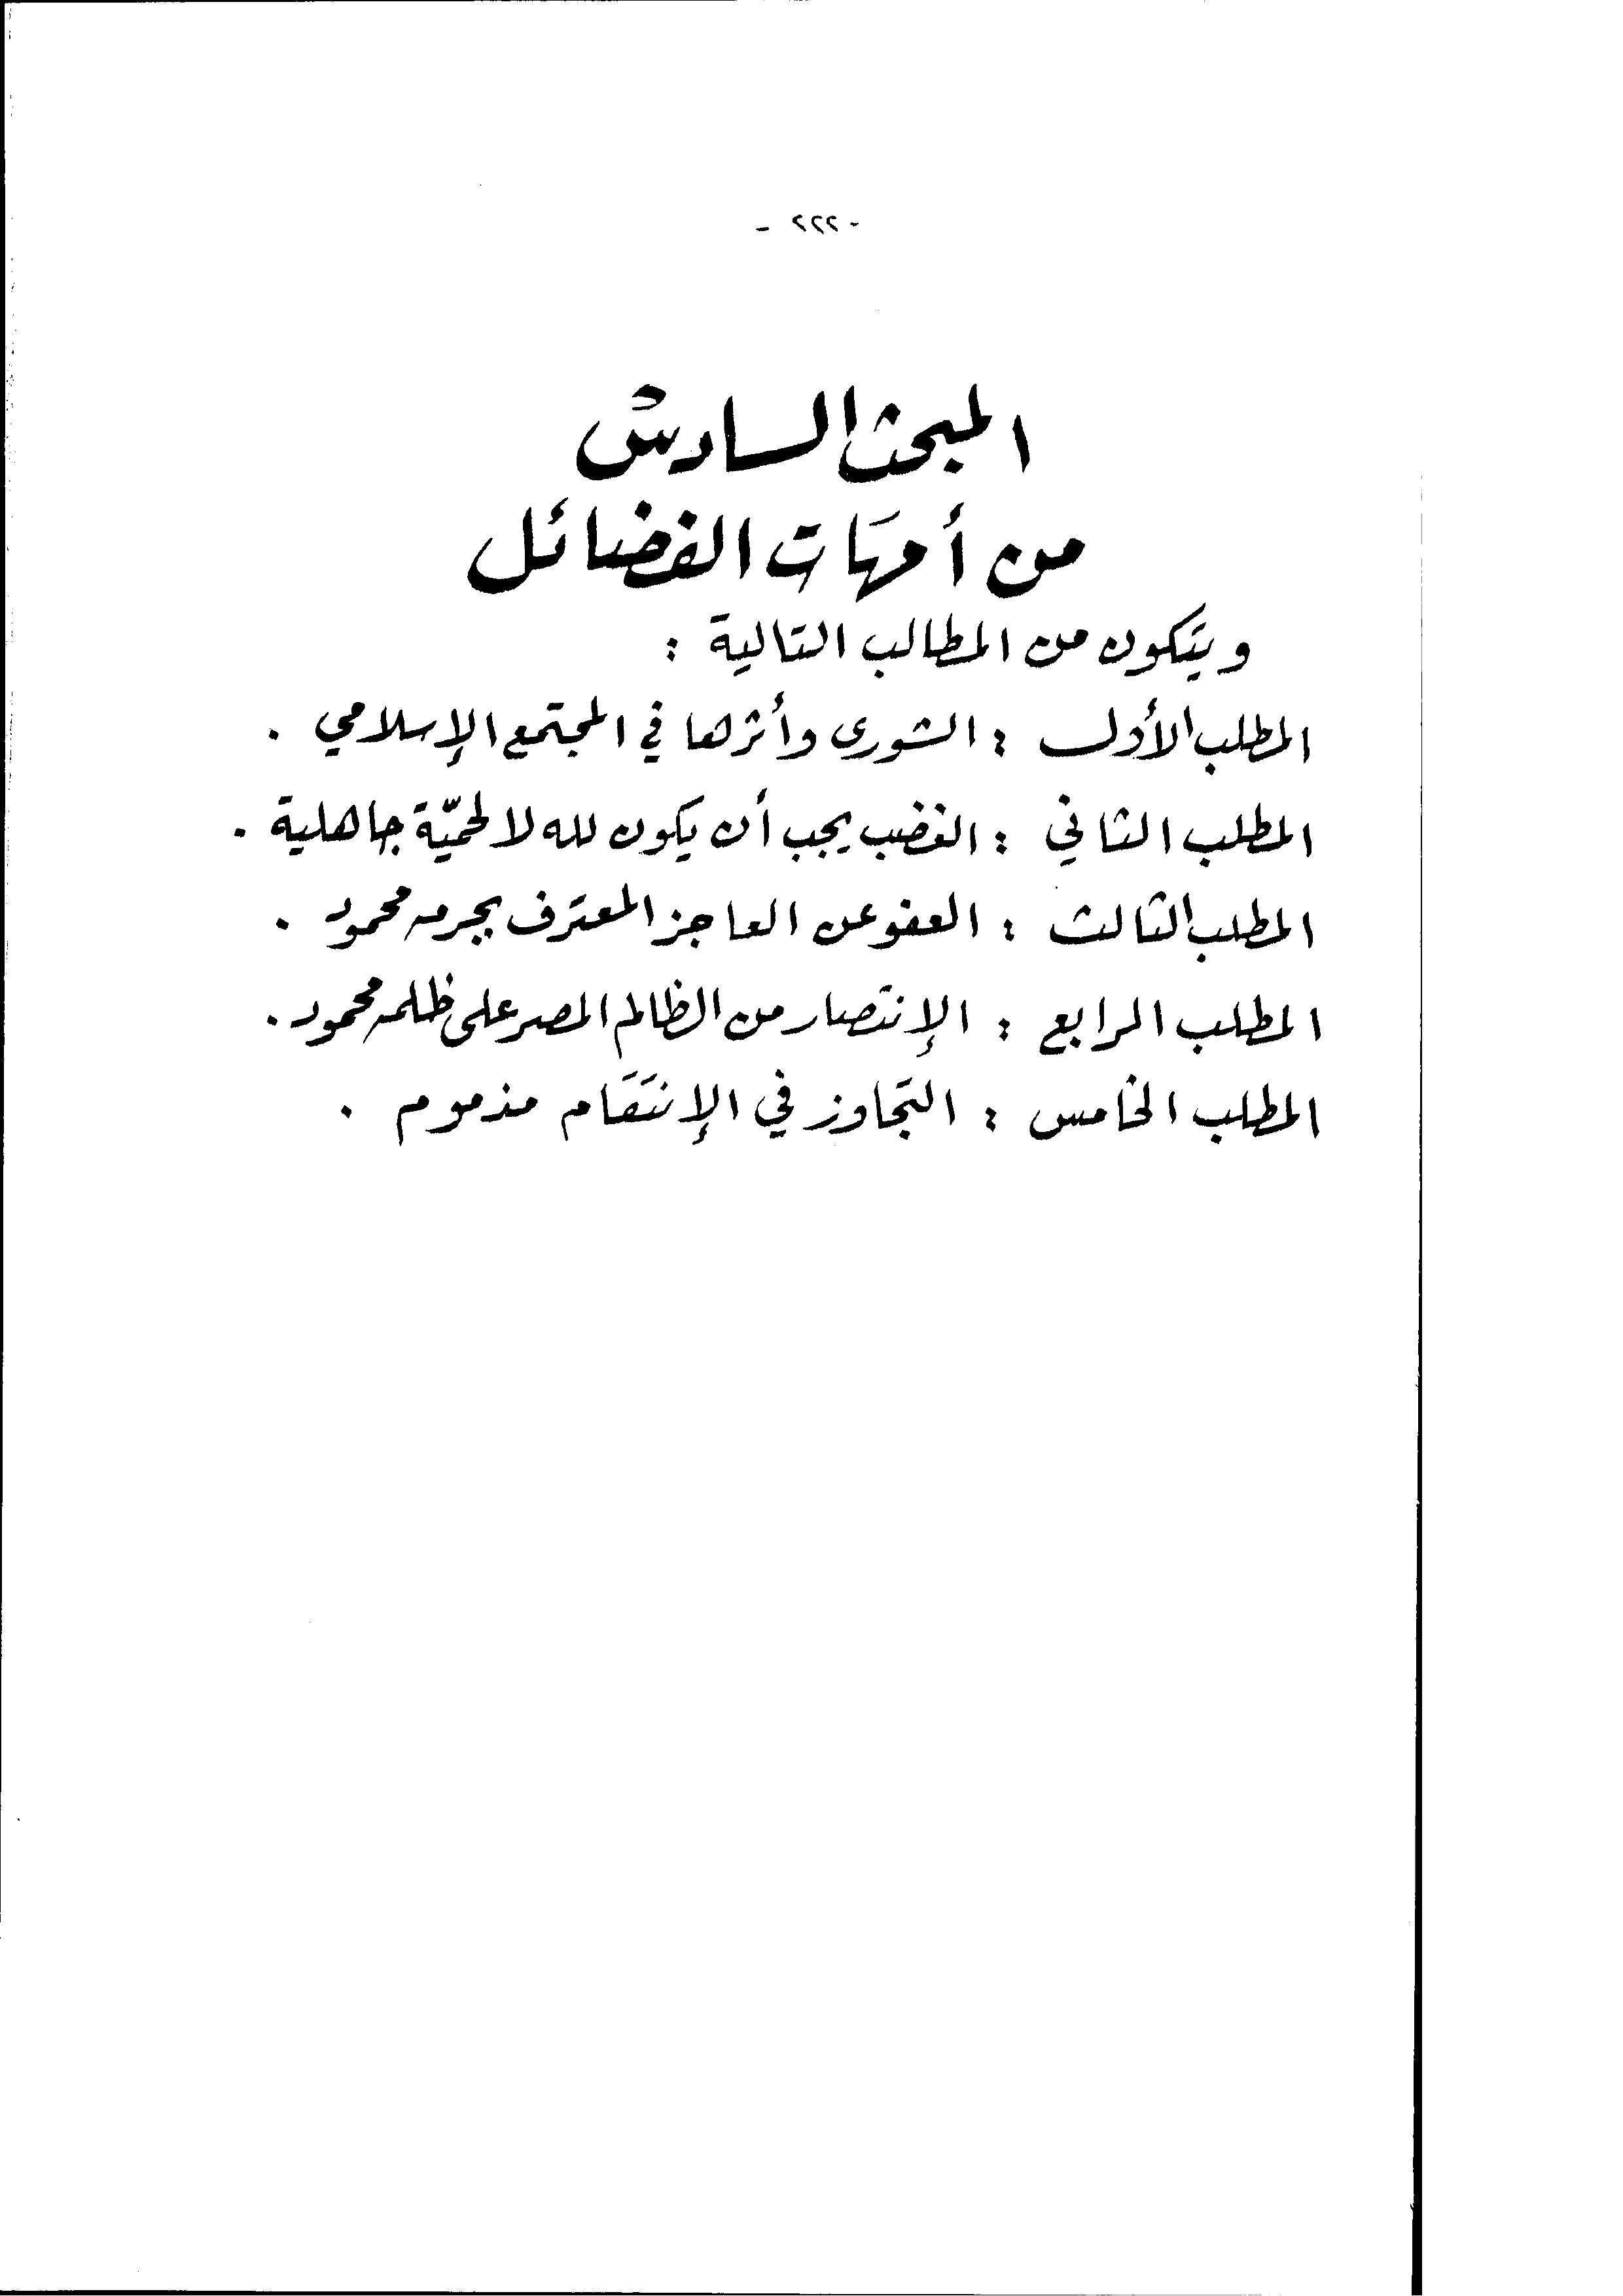 - ٢٢٢ -
المبحث السادس
من أمهَات الفضائل
ويتكون من المطالب التالية :
المطلب الأول : الشورى وأثرها في المجتمع الإسلامي .
المطلب الثاني : الغضب يجب أن يكون لله لا لحميّة جاهلية .
المطلب الثالث : العفو عن العاجز المعترف بجرمه محمود .
المطلب الرابع : الإنتصار من الظالم المصر على ظلمه محمود .
المطلب الخامس : التجاوز في الإنتَقَام مذموم .